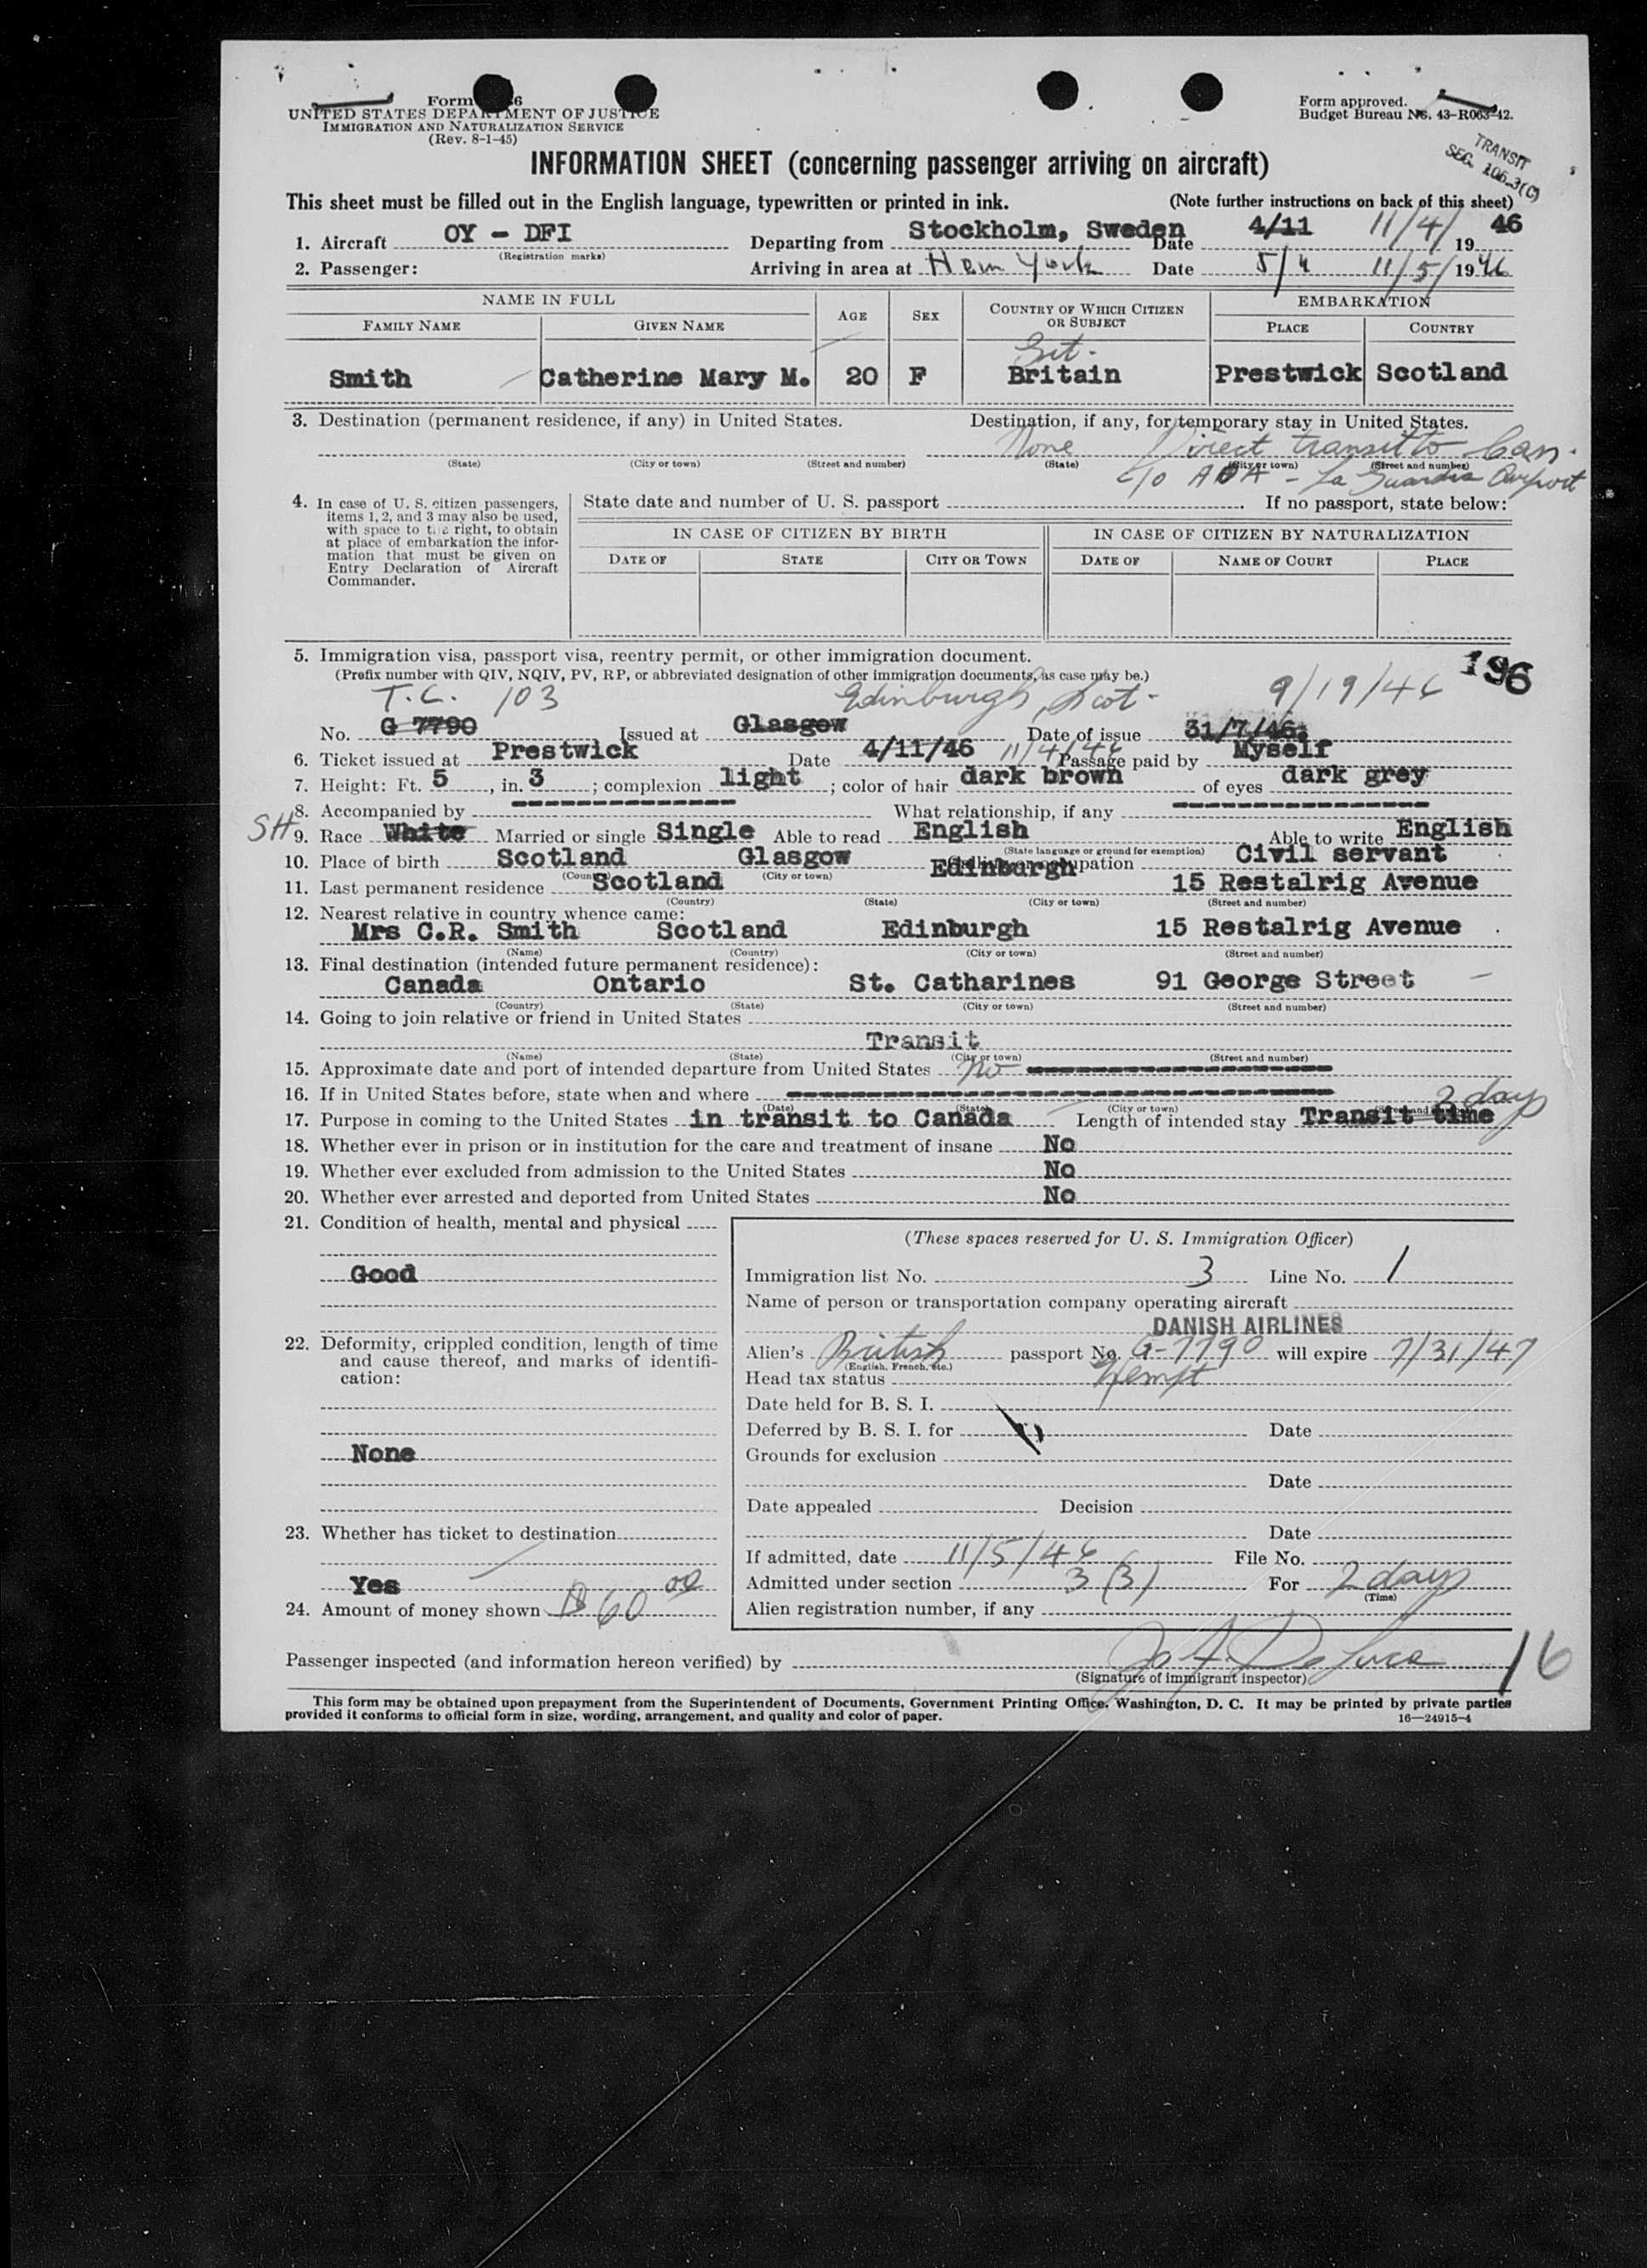 Form 6
UNITED STATES DEPARTMENT OF JUSTICE
IMMIGRATION AND NATURALIZATION SERVICE
(Rev. 8-1-45)
Form approved.
Budget Bureau No. 43-R063-42.
TRANSIT
SEC. 106.3(C)
INFORMATION SHEET (concerning passenger arriving on aircraft)
This sheet must be filled out in the English language, typewritten or printed in ink. (Note further instructions on back of this sheet)
1. Aircraft OY - DFI Departing from Stockholm, Sweden Date 4/11 11/4/ 19 46
(Registration marks)
2. Passenger: Arriving in area at New York Date 5/11 11/5/ 1946
NAME IN FULL AGE SEX COUNTRY OF WHICH CITIZEN OR SUBJECT EMBARKATION
FAMILY NAME GIVEN NAME PLACE COUNTRY
Gt.
Smith Catherine Mary M. 20 F Britain Prestwick Scotland
3. Destination (permanent residence, if any) in United States. Destination, if any, for temporary stay in United States.
None Direct transit to Can.
(State) (City or town) (Street and number) (State) (City or town) (Street and number)
c/o AOA - La Guardia Airport
4. In case of U. S. citizen passengers, items 1, 2, and 3 may also be used, with space to the right, to obtain at place of embarkation the information that must be given on Entry Declaration of Aircraft Commander.
State date and number of U. S. passport . If no passport, state below:
IN CASE OF CITIZEN BY BIRTH IN CASE OF CITIZEN BY NATURALIZATION
DATE OF STATE CITY OR TOWN DATE OF NAME OF COURT PLACE
5. Immigration visa, passport visa, reentry permit, or other immigration document.
(Prefix number with QIV, NQIV, PV, RP, or abbreviated designation of other immigration documents, as case may be.)
196
T.C. 103 Edinburgh, Scot- 9/19/46
No. G 7790 Issued at Glasgow Date of issue 31/7/46.
6. Ticket issued at Prestwick Date 4/11/46 11/4/46 Passage paid by Myself
7. Height: Ft. 5, in. 3; complexion light; color of hair dark brown of eyes dark grey
8. Accompanied by What relationship, if any
SH 9. Race White Married or single Single Able to read English Able to write English
(State language or ground for exemption)
10. Place of birth Scotland Glasgow Calling or occupation Civil servant
(Country) (City or town)
11. Last permanent residence Scotland Edinburgh 15 Restalrig Avenue
(Country) (State) (City or town) (Street and number)
12. Nearest relative in country whence came:
Mrs C.R. Smith Scotland Edinburgh 15 Restalrig Avenue
(Name) (Country) (City or town) (Street and number)
13. Final destination (intended future permanent residence):
Canada Ontario St. Catharines 91 George Street
(Country) (State) (City or town) (Street and number)
14. Going to join relative or friend in United States
Transit
(Name) (State) (City or town) (Street and number)
15. Approximate date and port of intended departure from United States
No
16. If in United States before, state when and where
(Date) (State) (City or town) (Street and number)
2 days
17. Purpose in coming to the United States in transit to Canada Length of intended stay Transit time
18. Whether ever in prison or in institution for the care and treatment of insane No
19. Whether ever excluded from admission to the United States No
20. Whether ever arrested and deported from United States No
21. Condition of health, mental and physical
Good
22. Deformity, crippled condition, length of time and cause thereof, and marks of identification:
None
23. Whether has ticket to destination
Yes
24. Amount of money shown $ 60 00
(These spaces reserved for U. S. Immigration Officer)
Immigration list No. 3 Line No. 1
Name of person or transportation company operating aircraft
DANISH AIRLINES
Alien's British passport No. G-7790 will expire 7/31/47
(English, French, etc.)
Head tax status Exempt
Date held for B. S. I.
Deferred by B. S. I. for Date
Grounds for exclusion
Date
Date appealed Decision
Date
If admitted, date 11/5/46 File No.
Admitted under section 3 (3) For 2 days
(Time)
Alien registration number, if any
Passenger inspected (and information hereon verified) by Jo A. DeLuca 16
(Signature of immigrant inspector)
This form may be obtained upon prepayment from the Superintendent of Documents, Government Printing Office, Washington, D. C. It may be printed by private parties
provided it conforms to official form in size, wording, arrangement, and quality and color of paper. 16—24915-4